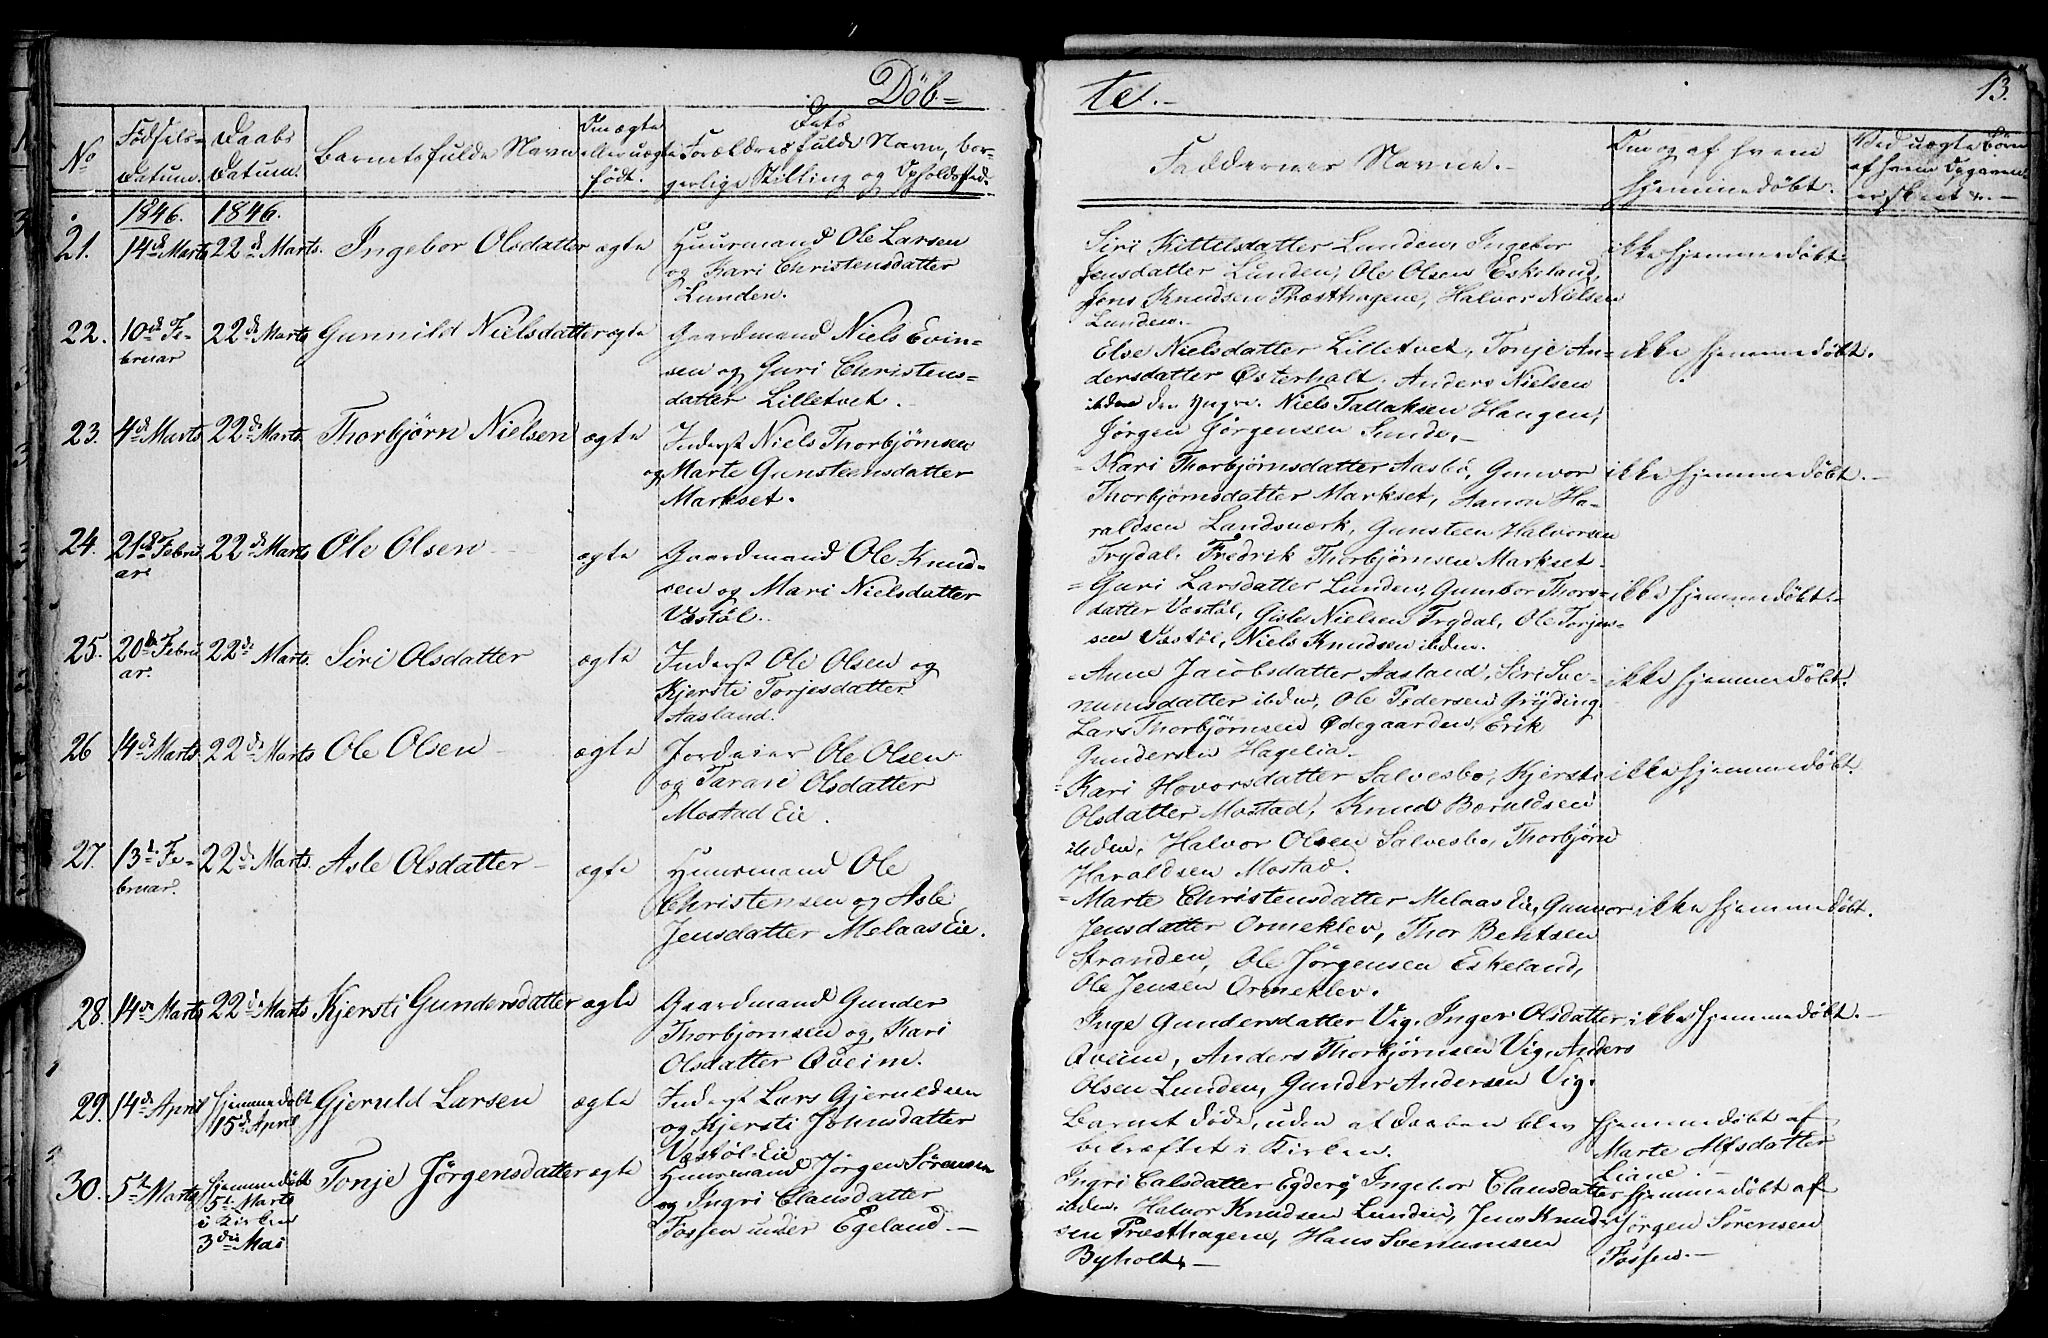 Döb-
te.-
13.
No
Fødsels-
Datum.
Daabs
Datum.
Barnets fulde Navn
Om ægte
eller uægte
født.
Dets
Forældres fulde Navn, bor-
gerlige Stilling og Opholdssted.
Faddernes Navne.-
Om og af hvem
hjemmedøbt.
Ved uægte Børn
af hvem Opgivend
er skeet &.-
1846.
1846.
21.
14de Marts
22de Marts.
Ingebor Olsdatter
ægte
Huusmand Ole Larsen
og Kari Christensdatter
Lunden.
Siri Kittelsdatter Lunden, Ingebor
Jensdatter Lunden, Ole Olsen Eskeland,
Jens Knudsen Præsthagene, Halvor Nielsen
Lunden.-
ikke hjemmedøbt
22.
10de Fe-
bruar
22de Marts
Gunnild Nielsdatter
ægte
Gaardmand Niels Evin-
sen og Guri Christens-
datter Lilletvet.
Else Nielsdatter Lilletvet, Tonje An-
dersdatter Østerholt. Anders Nielsen
ibden den Yngre. Niels Tallaksen Haugen,
Jørgen Jørgensen Sunde.-
ikke hjemmedøbt.
23.
4de Marts
22de Marts.
Thorbjørn Nielsen
ægte
Inderst Niels Thorbjørnsen
og Marte Gunsteensdatter
Markset.
Kari Thorbjørnsdatter Aasbø, Gunvor
Thorbjørnsdatter Markset, Aanon Ha-
raldsen Landsværk, Gunsteen Halvorsen
Trydal. Fredrik Thorbjørnsen Markset.
ikke hjemmedøbt.-
24.
21de Febru
ar.
22de Marts
Ole Olsen
ægte
Gaardmand Ole Knud-
sen og Mari Nielsdatter
Vestøl.
Guri Larsdatter Lunden, Gunbor Thors-
datter Vestøl, Gisle Nielsen Trydal, Ole Torjes-
sen Vestøl, Niels Knudsen ibden.
ikke hjemmedøbt.-
25.
20de Febru
ar.
22de Marts.
Siri Olsdatter
ægte
Inderst Ole Olsen og
Kjersti Torjesdatter
Aasland.
Anne Jacobsdatter Aasland, Siri Sve-
numsdatter ibden, Ole Pedersen Gryding
Lars Thorbjørnsen Ødegaarden, Erik
Gundersen Hagelia.
ikke hjemmedøbt.
26
14de Marts.
22de Marts
Ole Olsen
ægte
Jordeier Ole Olsen
og Taran Olsdatter
Mostad Eie.
Kari Hovorsdatter Salvesbo, Kjersti
Olsdatter Mostad, Knud Beruldsen
ibden, Halvor Olsen Salvesbo, Thorbjørn
Haraldsen Mostad.
ikke hjemmedøbt.
27.
13de Fe-
bruar.
22de Marts.
Asle Olsdatter
ægte
Huusmand Ole
Christensen og Asle
Jensdatter Melaas Eie.
Marte Christensdatter Melaas Eie, Gunvor
Jensdatter Ormeklev, Thor Bentsen
Stranden, Ole Jørgensen Eskeland,
Ole Jensen Ormeklev.
ikke hjemmedøbt.
28.
14de Marts
22de Marts
Kjersti Gundersdatter
ægte
Gaardmand Gunder
Thorbjørnsen og Kari
Olsdatter Qveim.
Inge Gundersdatter Vig. Inger Olsdatter
Qveim, Anders Thorbjørnsen Vig, Anders
Olsen Lunden, Gunder Andersen Vig.
ikke hjemmedøbt.-
29.
14de April
hjemmedøbt
15de April
Gjeruld Larsen
ægte
Inderst Lars Gjeruldsen
og Kjersti Johnsdatter
Vestøl-Eie
Barnet døde, uden at Daaben blev
bekræftet i Kirken.
hjemmedøbt af
Marte Alfsdatter
Liane.-
30.
5te Marts
hjemmedøbt
5te Marts
i Kirken
3die Mai
Tonje Jørgensdatter
ægte
Huusmand Jørgen Sørensen
og Ingri Clausdatter
Fossen under Egeland.-
Ingri Calsdatter Egder, Ingebor Clausdatter
ibden. Halvor Knudsen Lunden, Jens Knud-
sen Præsthagene, Hans Svenumsen
Byholt.-
hjemmedøbt af
Jørgen Sørensen
Fossen.-